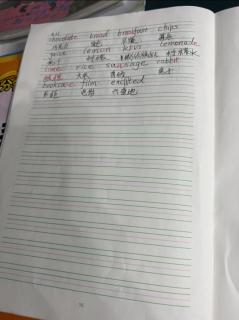 chocolate bread breakfast chips
巧克力 面包 早餐 薯条
juice lemon lemonade
果汁 柠檬 柠檬水
lime rice sausage rabbit
酸橙 大米 香肠 兔子
bookcase film excited
书柜 电影 兴奋地